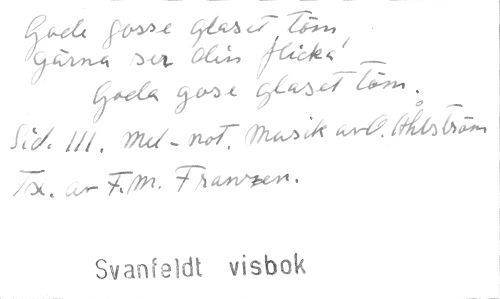 Gode gosse glaset töm,
gärna ser din flicka'
Goda gose glaset töm.
Sid. 111. Mel-not. Musik av O. Åhlström
Tx. av F.M. Franzen.
Svanfeldt visbok